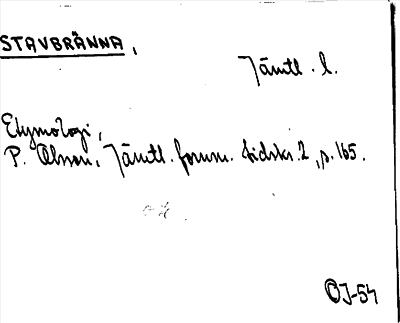 STAVBRÄNNA,
Jämtl. l.
Etymologi,
P. Olsson, Jämtl. fornm. tidskr. 2, p. 165.
OJ-54